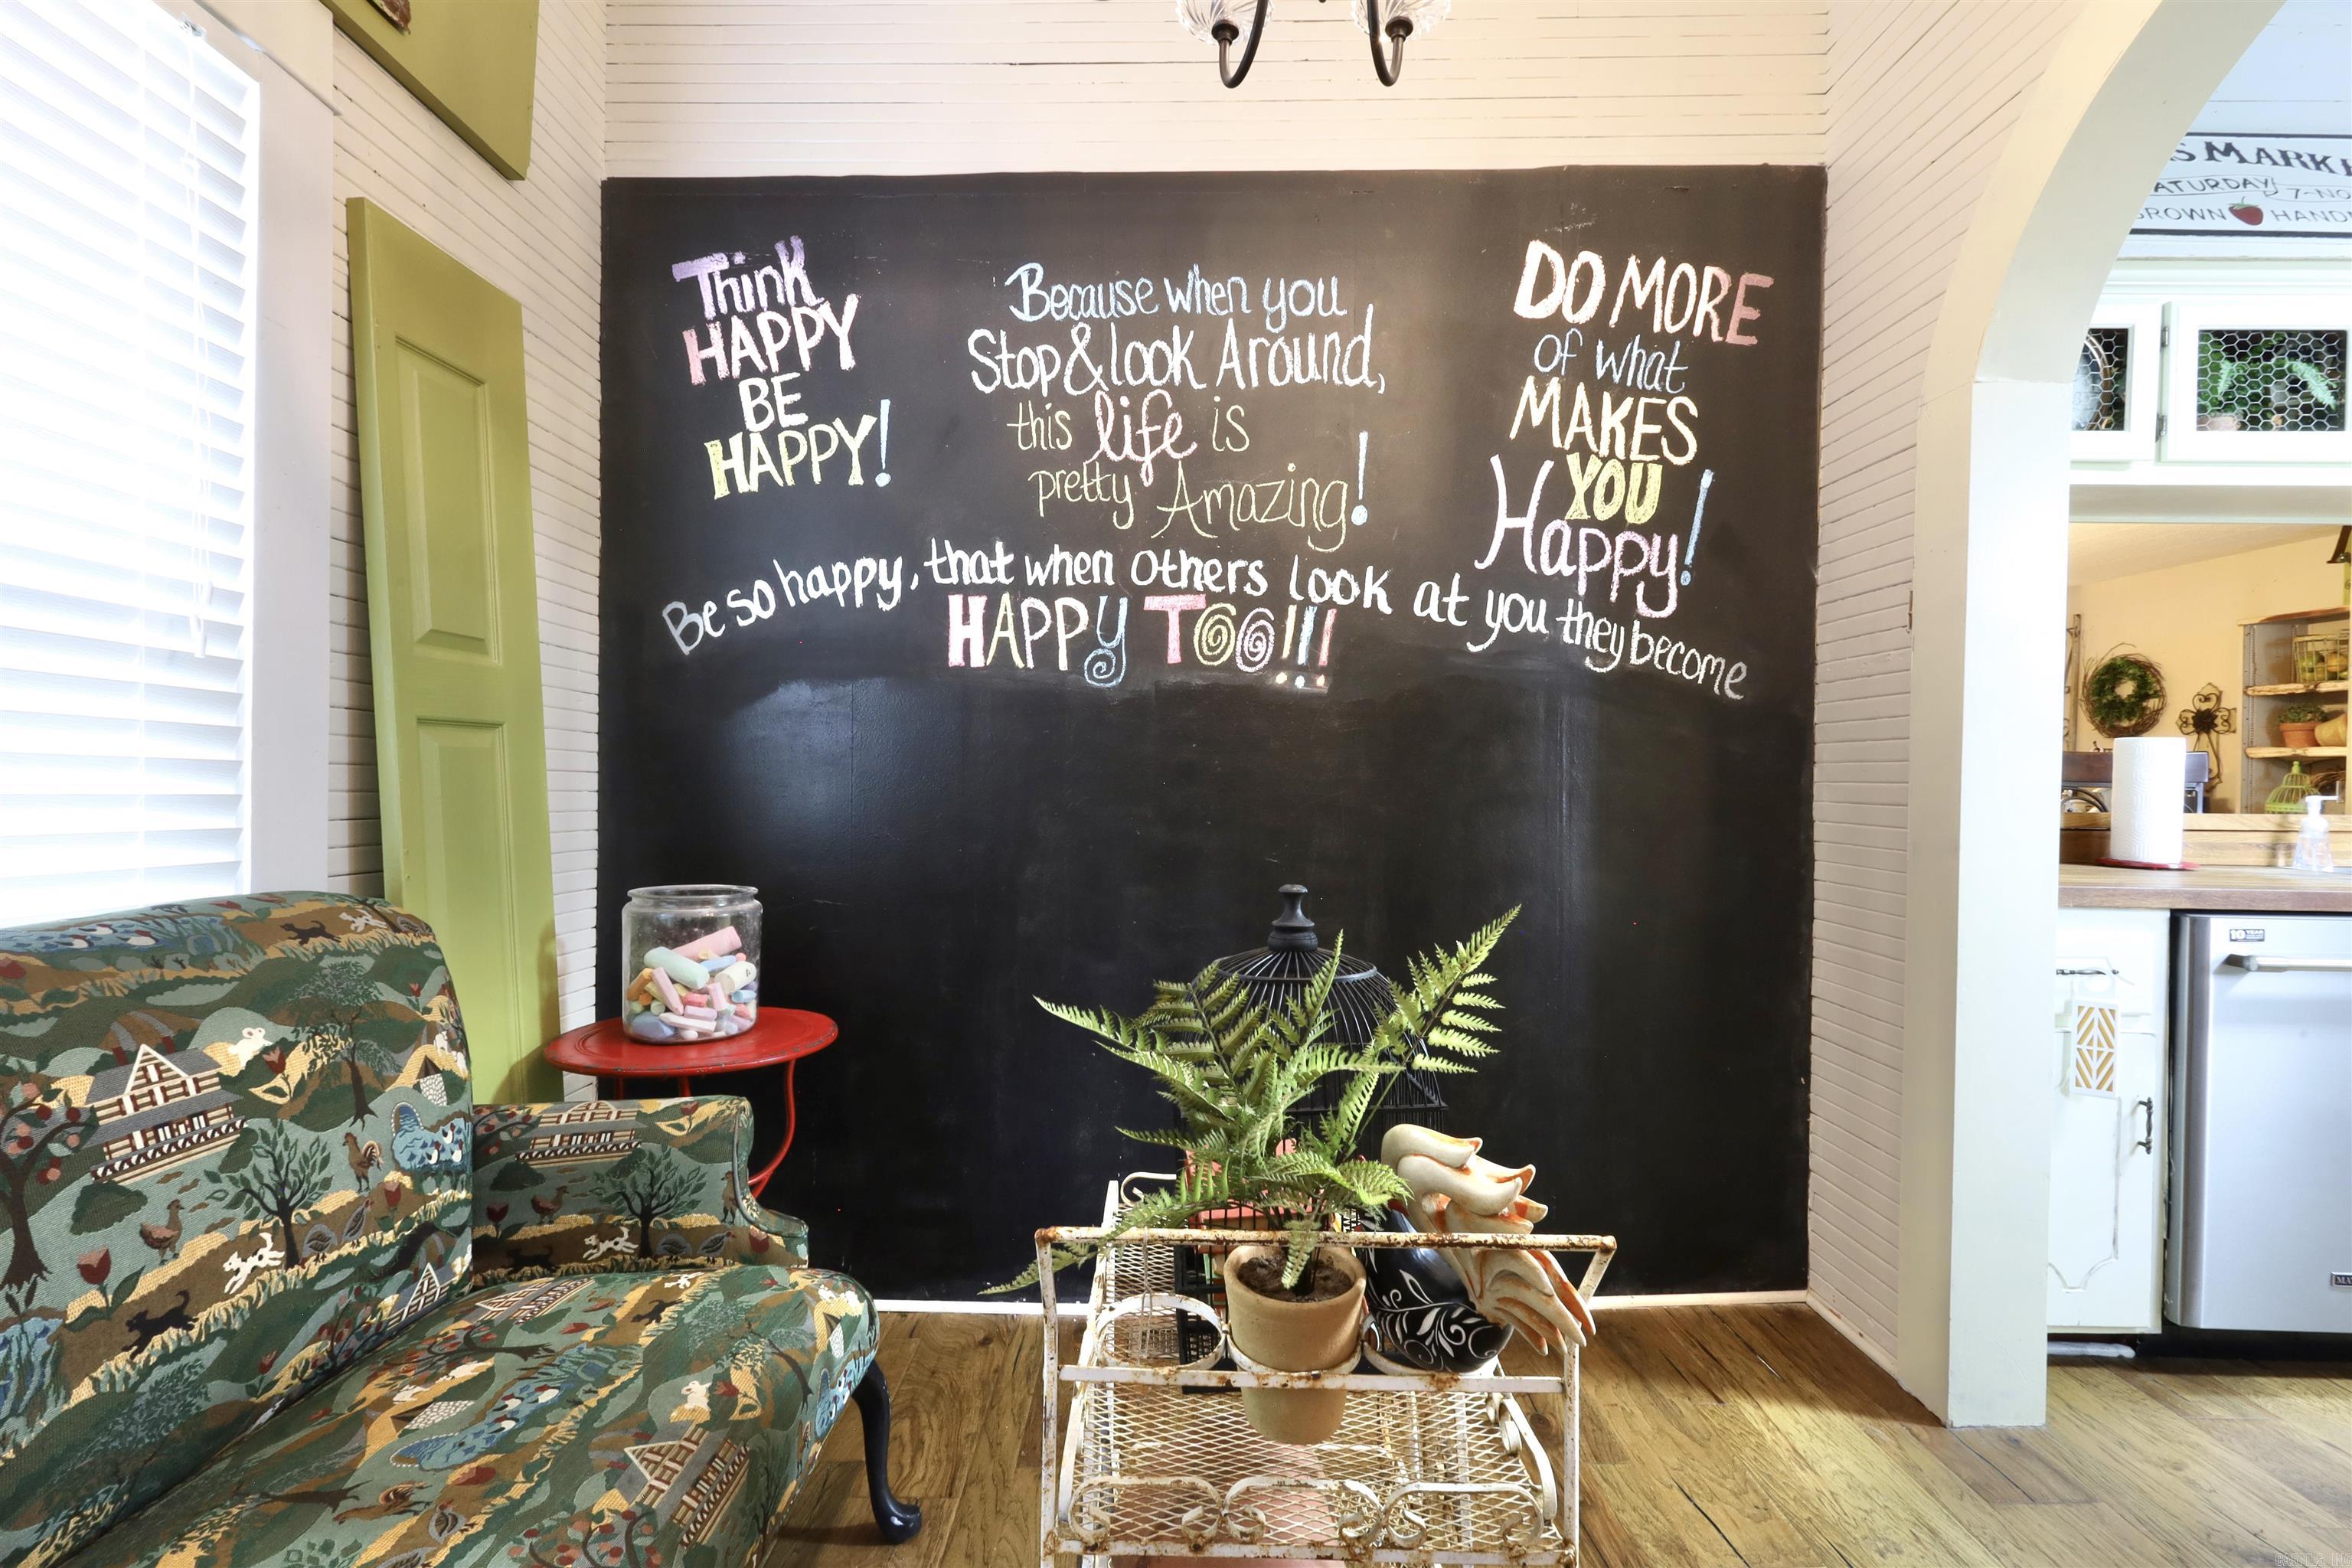 Think
HAPPY
BE
HAPPY!
Because when you
Stop & look Around,
this life is
pretty Amazing!
DO MORE
of what
MAKES
YOU
Happy!
Be so happy, that when others look at you they become
HAPPY TOO!!!
SATURDAY
HAND